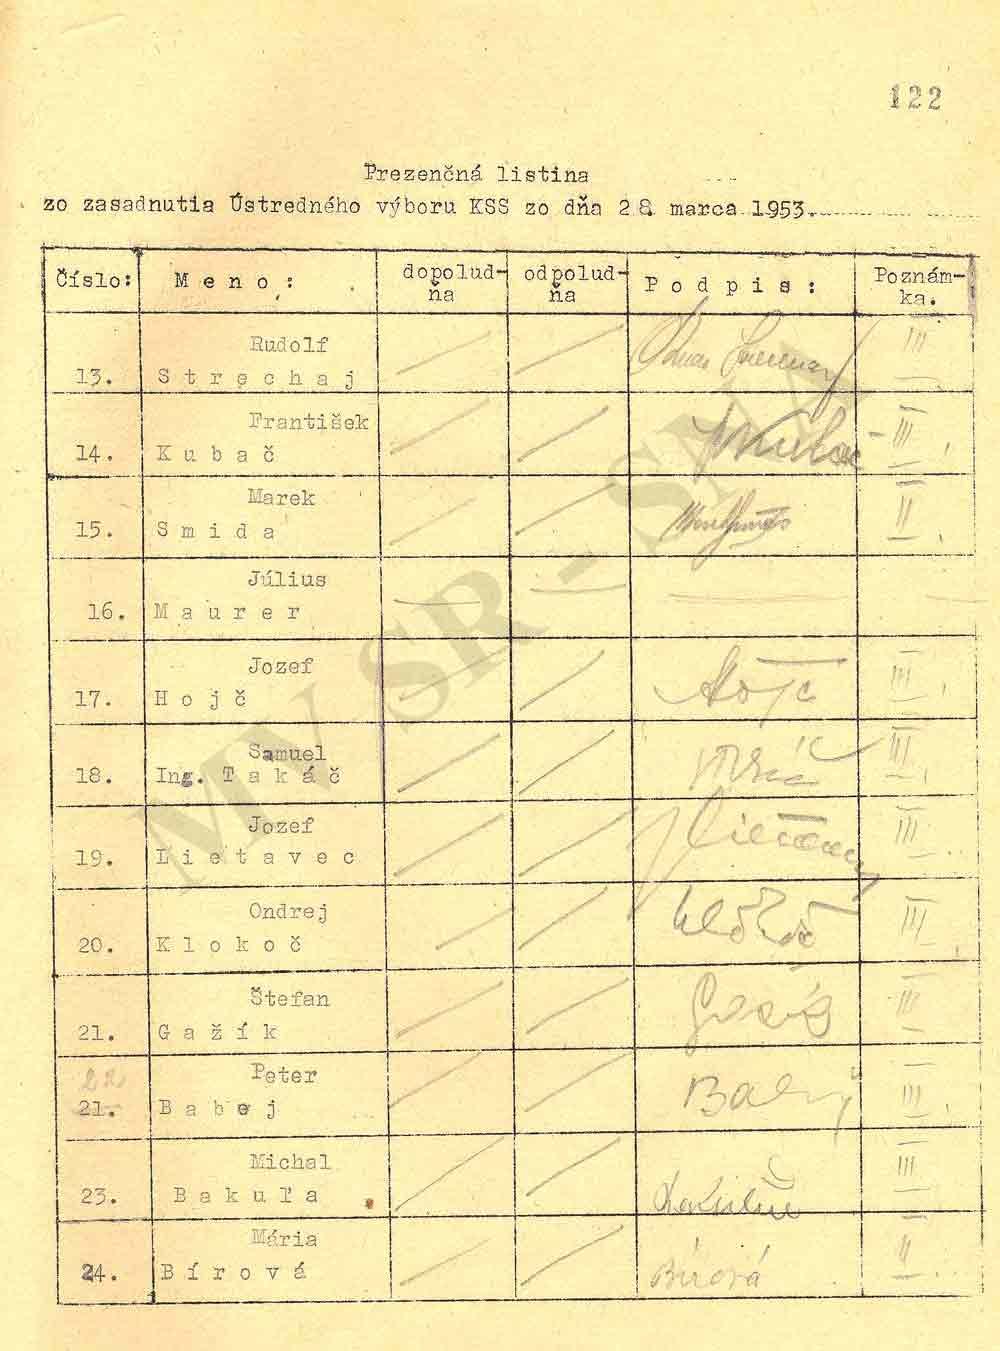 122
Prezenčná listina
zo zasadnutia Ústredného výboru KSS zo dňa 28 marca 1953.
Číslo: Meno: dopolud-ňa odpolud-ňa Podpis: Poznám-ka.
Rudolf III
13. Strechaj
František III
14. Kubač
Marek II
15. Smida
Július
16. Maurer
Jozef III
17. Hojč
Samuel III
18. Ing. Takáč
Jozef III
19. Lietavec
Ondrej III
20. Klokoč
Štefan III
21. Gažík
22 Peter
21. Babej III
Michal III
23. Bakuľa
Mária II
24. Bírová Bírová
MV SR - SNA